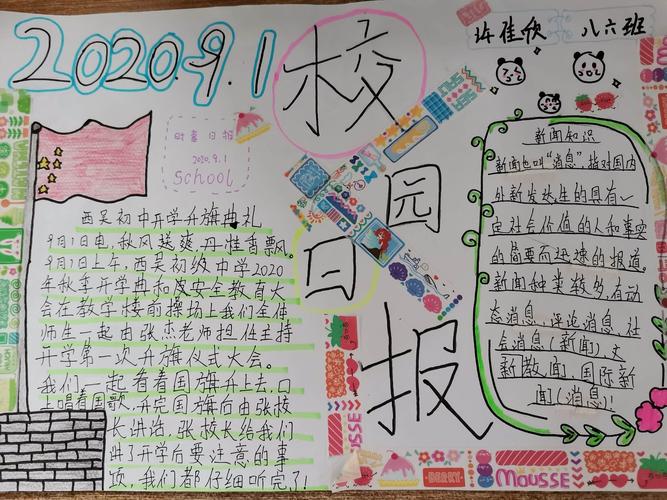 2020.9.1
校
园
日
报
许佳欣 八六班
时事日报
2020.9.1
School
西吴初中开学升旗典礼
9月1日电,秋风送爽,丹桂香飘。
9月1日上午,西吴初级中学2020
年秋季开学典和及安全教育大
会在教学楼前操场上我们全体
师生一起由张杰老师担任主持
开学第一次升旗仪式大会。
我们一起看着国旗升上去,口
上唱着国歌,升完国旗后由张校
长讲话,张校长给我们
讲了开学后要注意的事
项,我们都仔细听完了!
新闻知识
新闻也叫“消息”,指对国内
外新发达生的具有一
定社会价值的人和事实
的简要而迅速的报道。
新闻种类较多,有动
态消息,评论消息,社
会消息(新闻),文
新教闻,国际新
闻(消息)!
MOUSSE
BERRY
MOUSSE